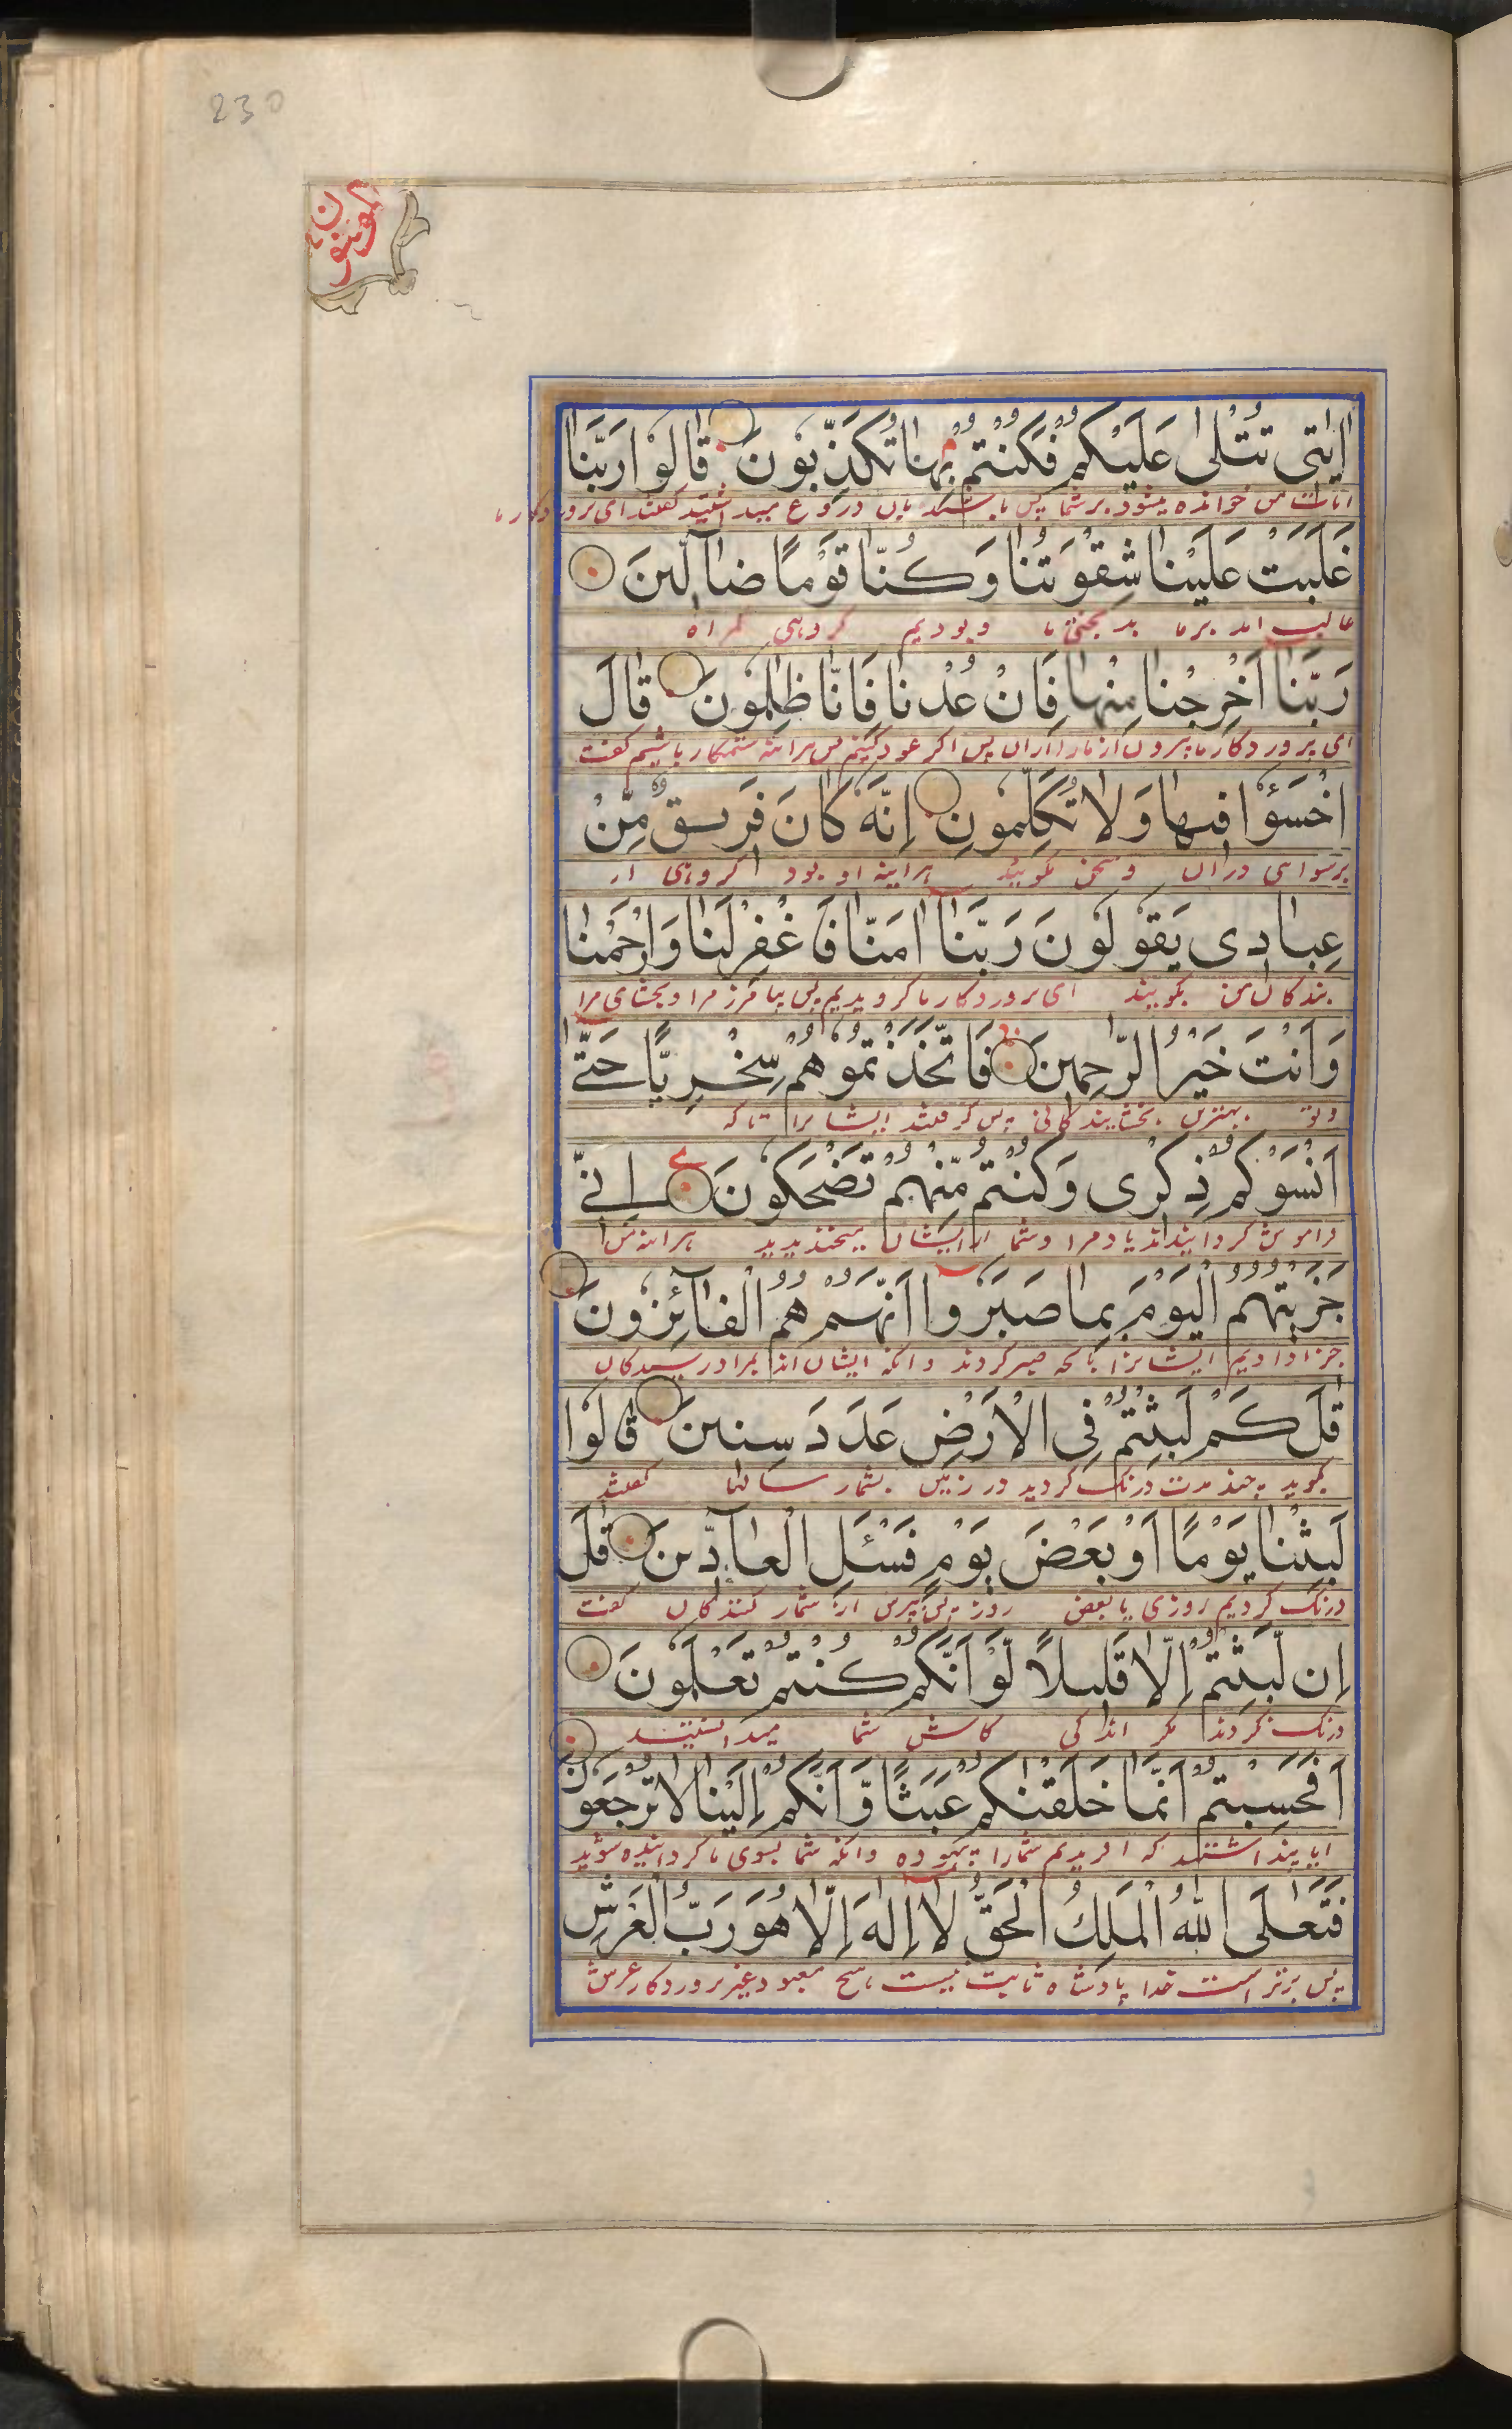 230
المؤمنون
اٰیٰتی تُتْلٰی عَلَیْکُمْ فَکُنْتُمْ بِهٰا تُکَذِّبُونَ قٰالُوا رَبَّنٰا
ایات من خوانده میشود بر شما پس باشید بان دروغ میداشتید گفتند ای پروردکار ما
غَلَبَتْ عَلَیْنٰا شِقْوَتُنٰا وَکُنّٰا قَوْمًا ضٰآلّینَ
غالب امد بر ما بدبختی ما و بودیم کروهی کمراه
رَبَّنٰا اَخْرِجْنٰا مِنْهٰا فَاِنْ عُدْنٰا فَاِنّٰا ظٰلِمُونَ قٰالَ
ای پروردکار ما بیرون ار ما را ازان پس اکر عود کنیم پس هراینه ستمکار باشیم کفت
اخْسَؤُا فیهٰا وَلٰا تُکَلِّمُونِ اِنَّهُ کٰانَ فَریقٌ مِّنْ
دران و سخن مکویید هراینه او بود کروهی از
عِبٰادی یَقُولُونَ رَبَّنٰا اٰمَنّٰا فَاغْفِرْلَنٰا وَارْحَمْنٰا
بندکان من بکویند ای پروردکار ما کرویدیم پس بیامرز مرا و بخشای مرا
وَاَنْتَ خَیْرُ الرّٰحِمینَ فَاتَّخَذْتُمُوهُمْ سِخْرِیًّا حَتّٰٓی
و تو بهترین بخشایندکانی پس کرفتند ایشانرا تا که
اَنْسَوْکُمْ ذِکْری وَکُنْتُمْ مِّنْهُمْ تَضْحَکُونَ اِنّی
فراموش کردانیدند یاد مرا و شما از ایشان میخندیدید هراینه من
جَزَیْتُهُمُ الْیَوْمَ بِمٰا صَبَرُوٓا اَنَّهُمْ هُمُ الْفٰآئِزُونَ
جزا دادیم ایشانرا بانچه صبر کردند و انکه ایشان اند بمراد رسیدکان
قٰلَ کَمْ لَبِثْتُمْ فِی الْاَرْضِ عَدَدَ سِنینَ قٰالُوا
بکوید چند مدت درنک کردید در زمین بشمار سالها کفتند
لَبِثْنٰا یَوْمًا اَوْ بَعْضَ یَوْمٍ فَسْئَلِ الْعٰآدّینَ قٰلَ
درنک کردیم روزی یا بعض روز پس بپرس از شمار کنندکان کفت
اِن لَّبِثْتُمْ اِلّٰا قَلیلًا لَّوْ اَنَّکُمْ کُنْتُمْ تَعْلَمُونَ
درنک نکردند مکر اندکی کاش شما میدانستید
اَفَحَسِبْتُمْ اَنَّمٰا خَلَقْنٰکُمْ عَبَثًا وَّ اَنَّکُمْ اِلَیْنٰا لٰا تُرْجَعُونَ
ایا پنداشتید که افریدیم شمارا بیهوده و انکه شما بسوی ما کردانیده شوید
فَتَعٰلَی اللّٰهُ الْمَلِكُ الْحَقُّ لٰٓا اِلٰهَ اِلّٰا هُوَ رَبُّ الْعَرْشِ
پس برتر است خدا پادشاه ثابت نیست هیچ معبود بغیر پروردکار عرش